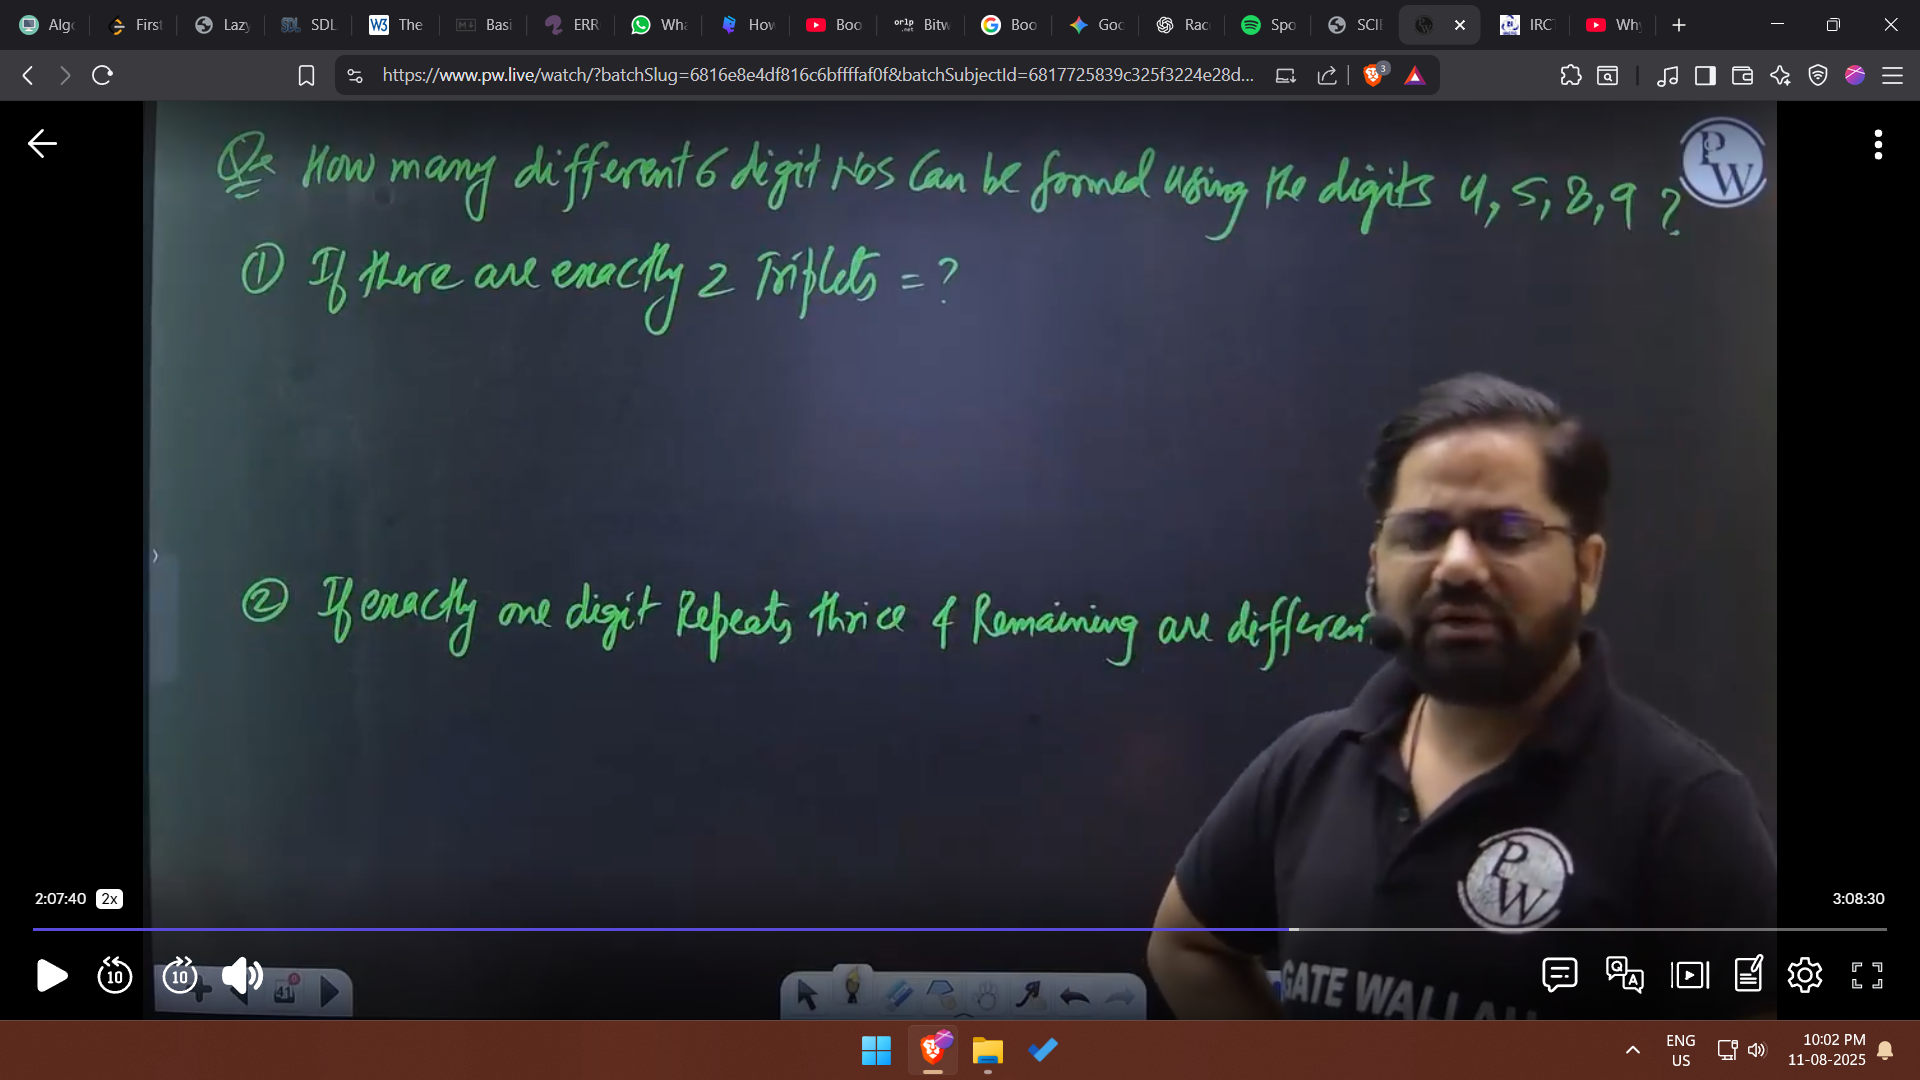 Algo
First
Lazy
SDL
W3 The
Basi
ERR
Wha
How
Boo
orlp .net Bitw
Boo
Goo
Rac
Spo
SCIE
IRCT
Why
https://www.pw.live/watch/?batchSlug=6816e8e4df816c6bffffaf0f&batchSubjectId=6817725839c325f3224e28d...
3
Q: How many different 6 digit Nos Can be formed using the digits 4, 5, 8, 9 ?
PW
① If there are exactly 2 Triplets = ?
② If exactly one digit Repeats thrice & Remaining are differen
PW
GATE WALLAH
2:07:40 2x
3:08:30
10
10
41
ENG
US
10:02 PM
11-08-2025